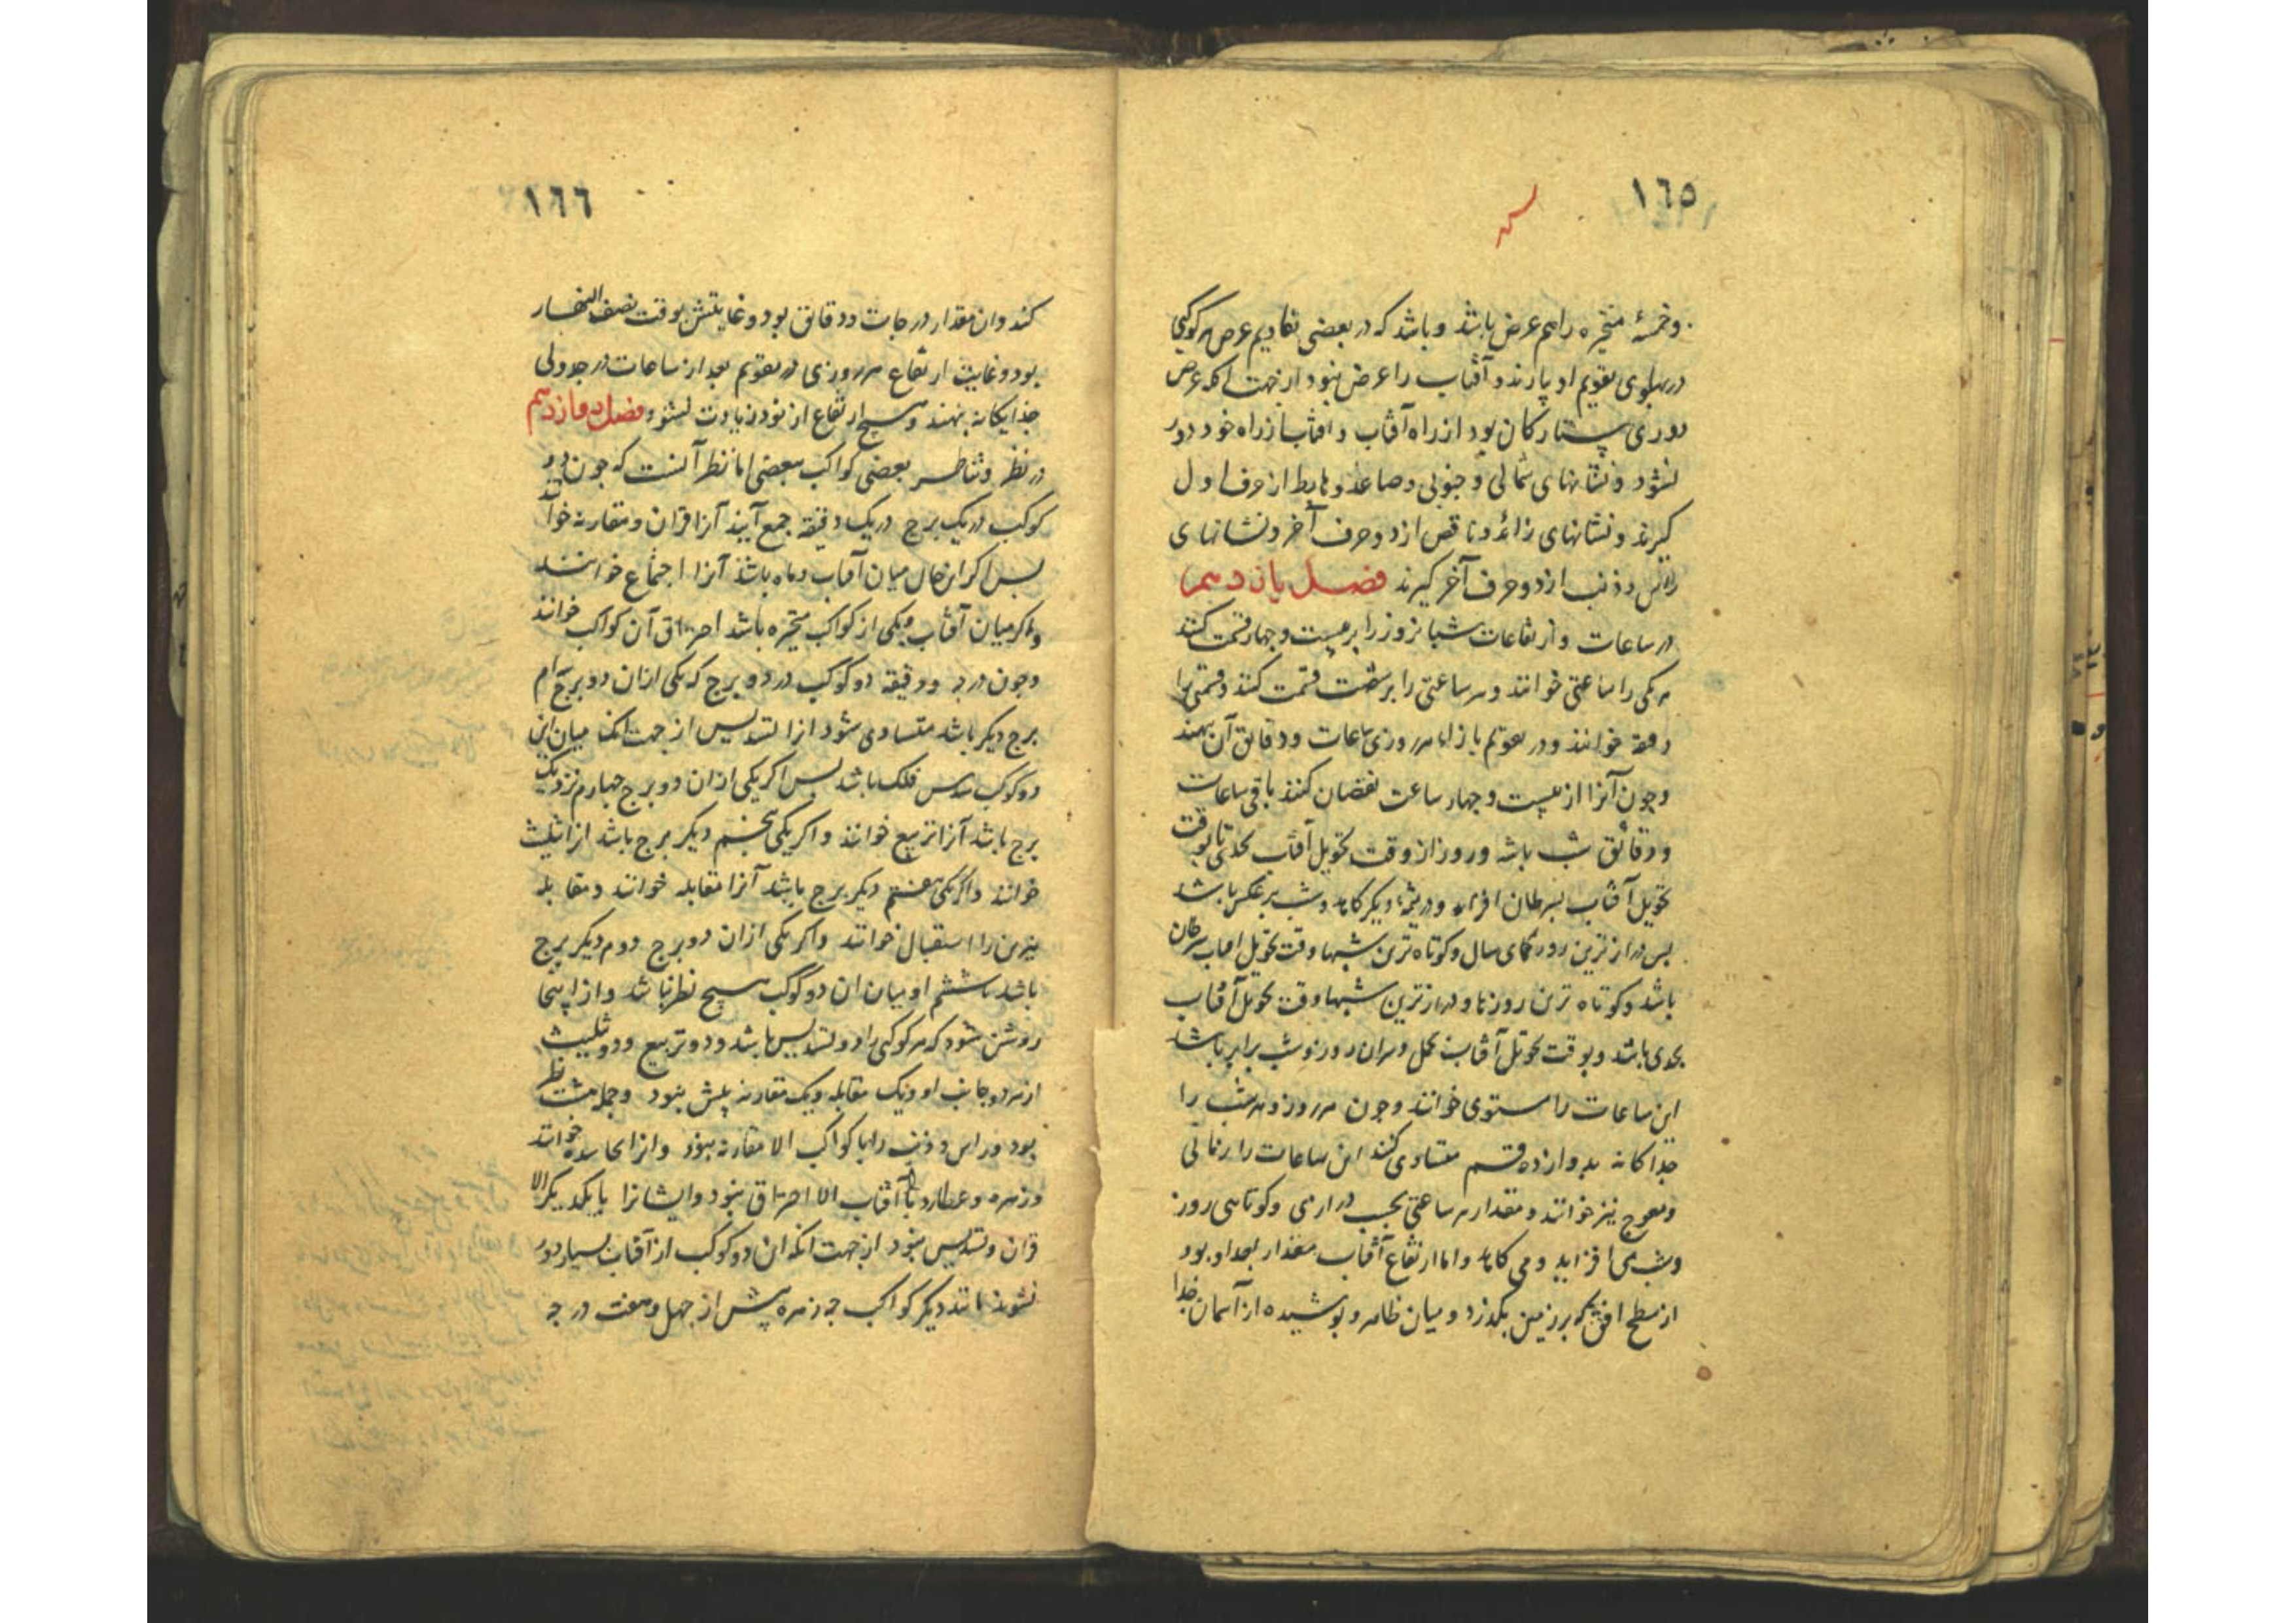 ١٦٥
وخمسهٔ متحیره را هم عرض باشد و باشد که در بعضی تقادیم عرض هر کوکبی
در پهلوی تقویم او بیارند و آفتاب را عرض نبود از جهت آنکه عرض
دوری ستارکان بود از راه آفتاب و آفتاب از راه خود دور
نشود و نشانهای شمالی و جنوبی و صاعد و هابط از حرف اول
کیرند و نشانهای زائد و ناقص از دو حرف آخر و نشانهای
راس و ذنب از دو حرف آخر کیرند فصل یازدهم
در ساعات و ارتفاعات شبانروز را بر بیست و چهار قسمت کنند
هر یکی را ساعتی خوانند و هر ساعتی را بر شصت قسمت کنند و قسمتی را
دقیقه خوانند و در تقویم بازاء هر روزی ساعات و دقائق آن بنهند
و چون آنرا از بیست و چهار ساعت نقصان کنند باقی ساعات
و دقائق شب باشد و روز از وقت تحویل آفتاب بجدی تا بوقت
تحویل آفتاب بسرطان افزاید و در نیمهٔ دیکر کاهد و شب بر عکس باشد
بس درازترین روزهای سال و کوتاه ترین شبها وقت تحویل افتاب سرطان
باشد و کوتاه ترین روزها و درازترین شبها وقت تحویل آفتاب
بجدی باشد و بوقت تحویل آفتاب بحمل و میزان روز و شب برابر باشد
این ساعات را مستوی خوانند و چون هر روز و هر شب را
جداکانه بدوازده قسم متساوی کنند این ساعات را زمانی
و معوج نیز خوانند و مقدار هر ساعتی بحسب درازی و کوتاهی روز
و شب می افزاید و می کاهد و اما ارتفاع آفتاب مقدار بعد او بود
از سطح افق که بر زمین بکذرد و میان ظاهر و پوشیده از آسمان جدا
١٦٦
کند و ان مقدار درجات و دقائق بود و غایتش بوقت نصف النهار
بود و غایت ارتفاع هر روزی در تقویم بعد از ساعات در جدولی
جداکانه بنهند و هیچ ارتفاع از نود زیادت نشود فصل دوازدهم
در نظر و تناظر بعضی کواکب ببعضی اما نظر آنست که چون دو
کوکب در یک برج در یک دقیقه جمع آیند آنرا قران و مقارنه خوانند
بس اکر این حال میان آفتاب و ماه باشد آنرا اجتماع خوانند
و اکر میان آفتاب و یکی از کواکب متحیره باشد احتراق آن کواکب خوانند
و چون درجه و دقیقه دو کوکب در دو برج که یکی ازان دو برج سیم
برج دیکر باشد متساوی شود انرا تسدیس از جهت انک میان این
دو کوکب سدس فلک باشد بس اکر یکی ازان دو برج چهارم نزدیک
برج باشد آنرا تربیع خوانند و اکر یکی پنجم دیکر برج باشد انرا تثلیث
خوانند و اکر یکی هفتم دیکر برج باشد آنرا مقابله خوانند و مقابله
نیرین را استقبال خوانند و اکر یکی ازان دو برج دوم دیکر برج
باشد یا ششم او میان ان دو کوکب هیچ نظر نباشد و از اینجا
روشن شود که هر کوکبی را دو تسدیس باشد و دو تربیع و دو تثلیث
از هر دو جانب او و یک مقابله و یک مقارنه بیش نبود و جمله هشت نظر
بود و راس و ذنب را با کواکب الا مقارنه نبود و انرا محاسده خوانند
و زهره و عطارد را با آفتاب الا احتراق نبود و ایشانرا با یکدیکر الا
قران و تسدیس نبود از جهت انکه ان دو کوکب از آفتاب بسیار دور
نشوند مانند دیکر کواکب چه زهره بیش از چهل و هفت درجه